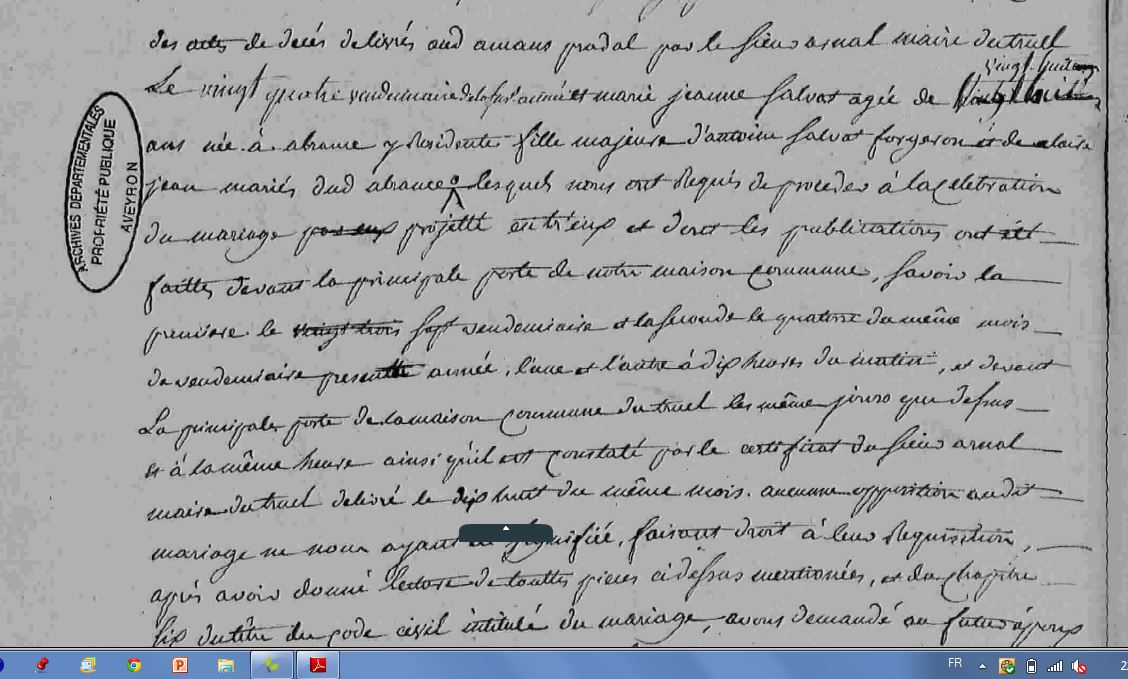 des actes de decés delivrés aud amans pradal par le sieur arnal maire du truel
vingt huit
Le vingt quatre vendemiaire de la susd. année et marie jeanne salvat agée de vingt huit
ans née à abrance y residente fille majeure d'antoine salvat forgeron et de
jean mariés dud abrance lesquels nous ont requis de proceder à la celebration
du mariage projetté entr'eux et dont les publications ont été
faittes devant la principale porte de notre maison commune, savoir la
premiere le vingt trois sept vendemiaire et la seconde le quatorse du même mois
de vendemiaire presente année, l'une et l'autre à dix heures du matin, et devant
La principale porte de la maison commune du truel les même jours que dessus
et à la même heure ainsi qu'il est constaté par le certificat du sieur arnal
maire du truel delivré le dix huit du même mois. aucunne opposition audit
mariage ne nous ayant signifiée, faisant droit à leur requisition,
après avoir donné lecture de touttes pieces ci dessus mentionées, et du chapitre
six du titre du code civil intitulé du mariage, avons demandé au futur époux
ARCHIVES DEPARTEMENTALES
PROPRIÉTÉ PUBLIQUE
AVEYRON
FR